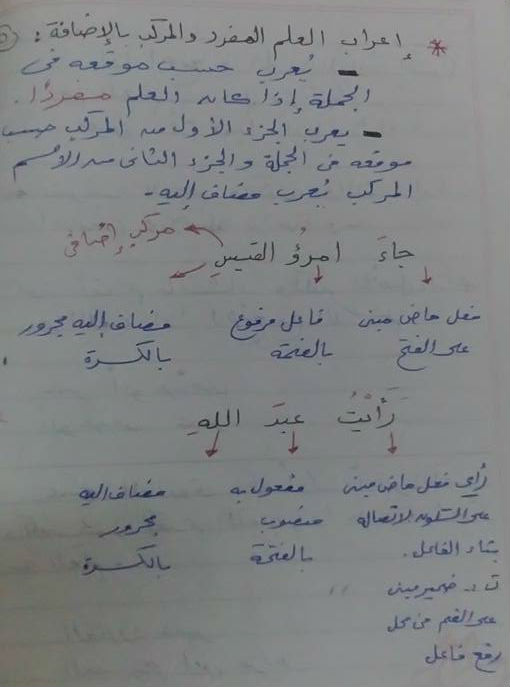 * إعراب العلم المفرد والمركب بالإضافة:
- يُعرب حسب موقعه فى
الجملة إذا كان العلم مفردًا.
- يعرب الجزء الأول من المركب حسب
موقعه فى الجملة والجزء الثانى من الاسم
المركب يُعرب مضاف إليه -
مركب إضافى
جاءَ امرؤُ القيسِ
فعل ماض مبنى فاعل مرفوع مضاف إليه مجرور
على الفتح بالضمة بالكسرة
رَأَيْتُ عبدَ اللهِ
رأى فعل ماض مبنى مفعول به مضاف اليه
على السكون لاتصاله منصوب مجرور
بتاء الفاعل. بالفتحة بالكسرة
ت .. ضمير مبنى
على الضم فى محل
رفع فاعل